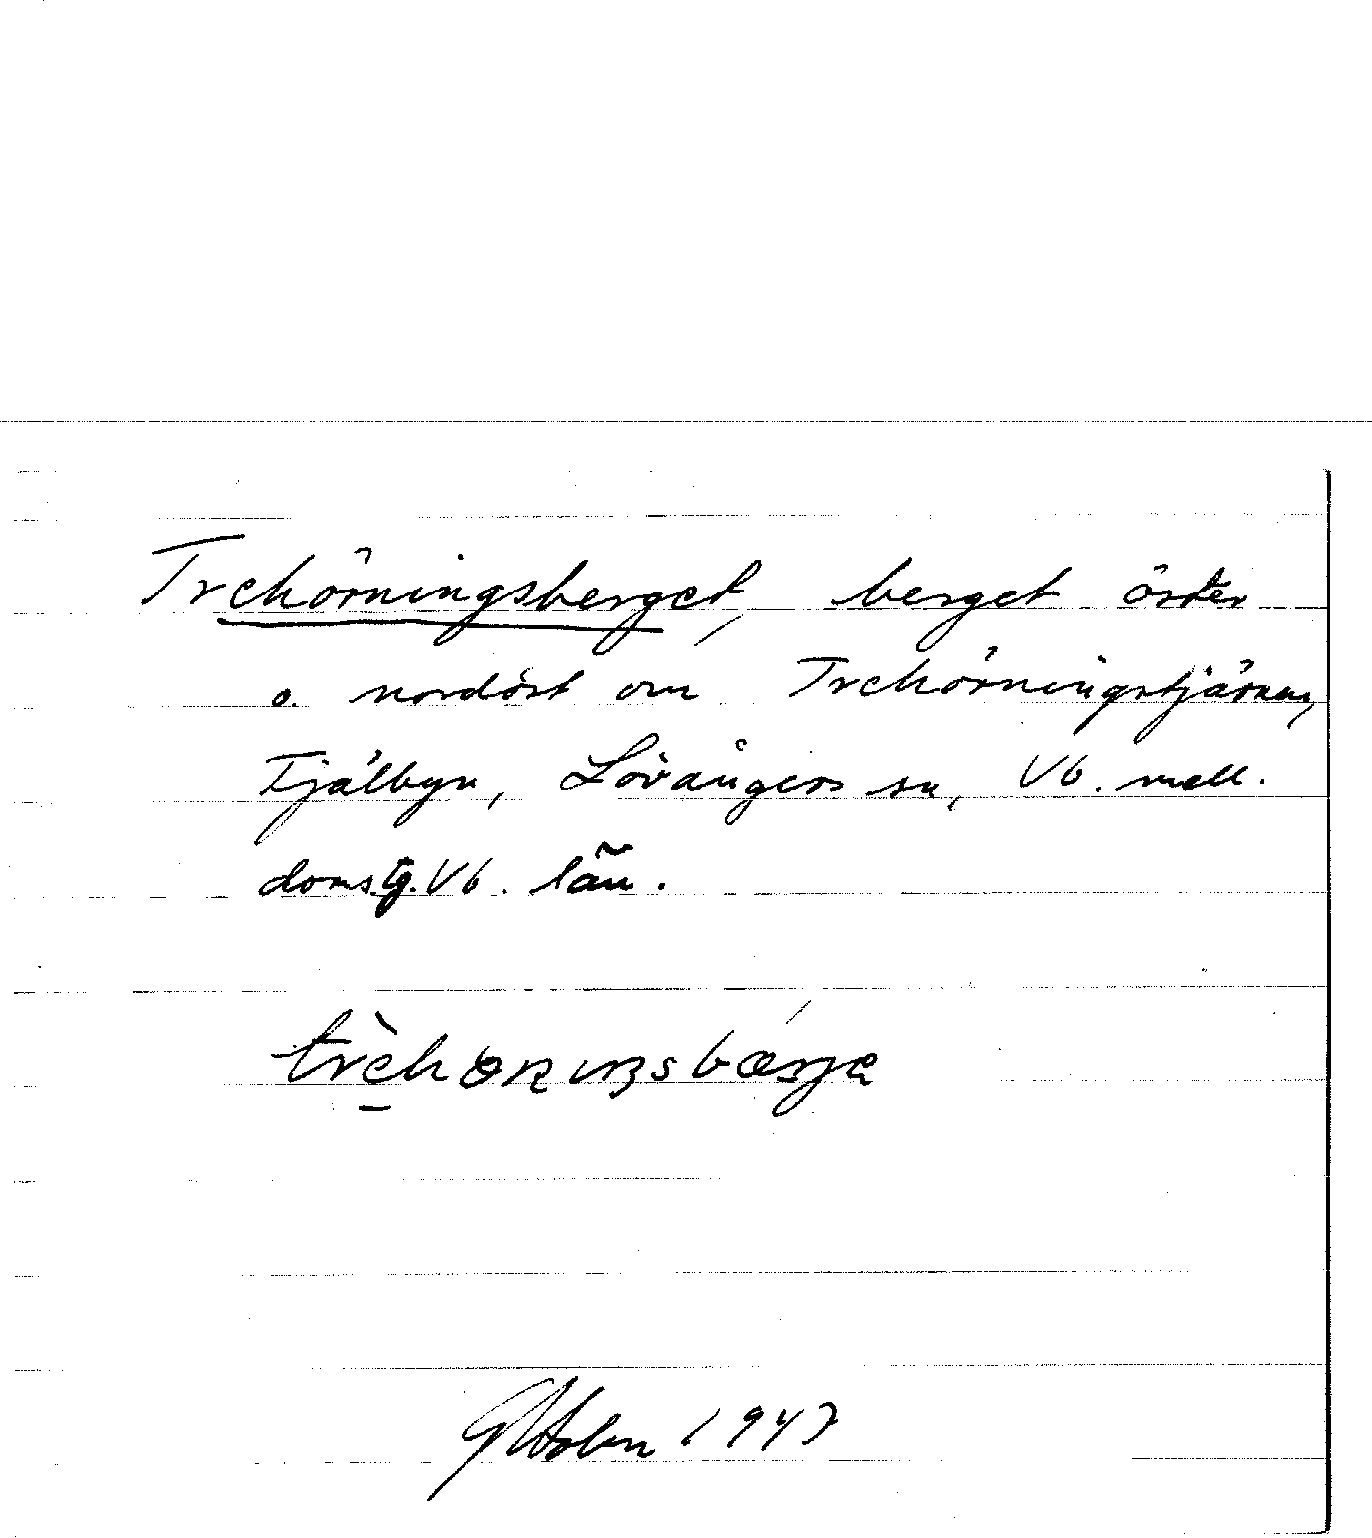 Trehörningsberget, berget öster
o. nordöst om Trehörningstjärnen,
Tjälbyn, Lövångers sn, Vb. mell.
domstg. Vb. län.
1943